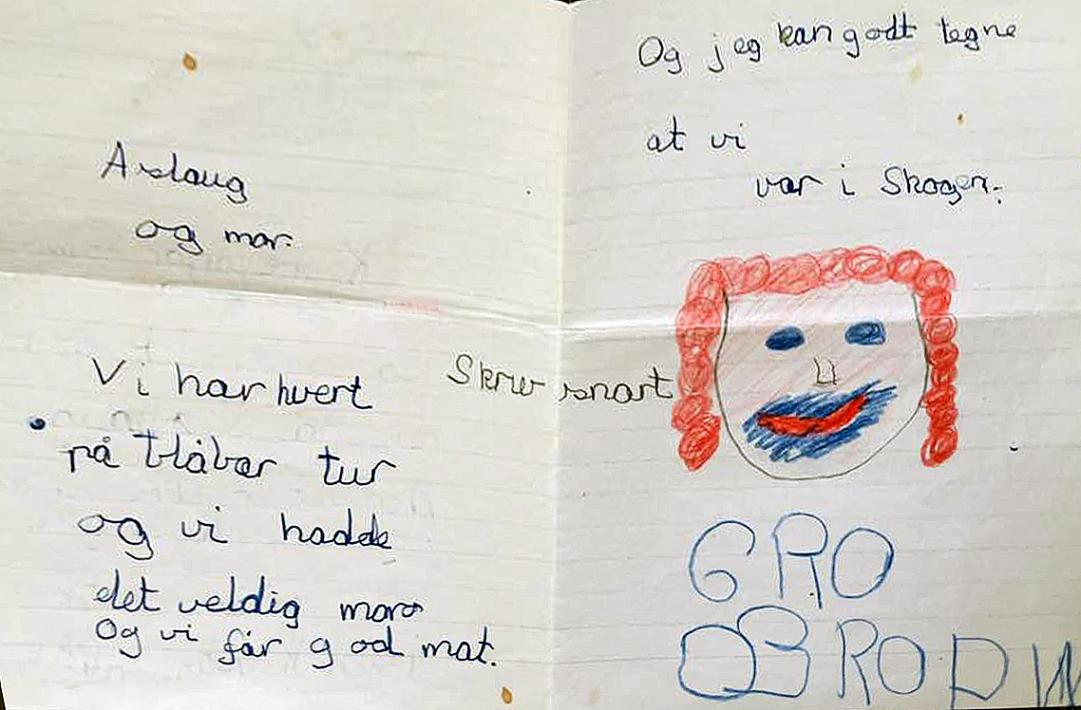 Aslaug
og mor.
Vi har hvert
på blåbær tur
og vi hadde
det veldig moro
Og vi får god mat.
Og jeg kan godt tegne
at vi
var i Skogen.
Skriv snart
GRO
OBRODW